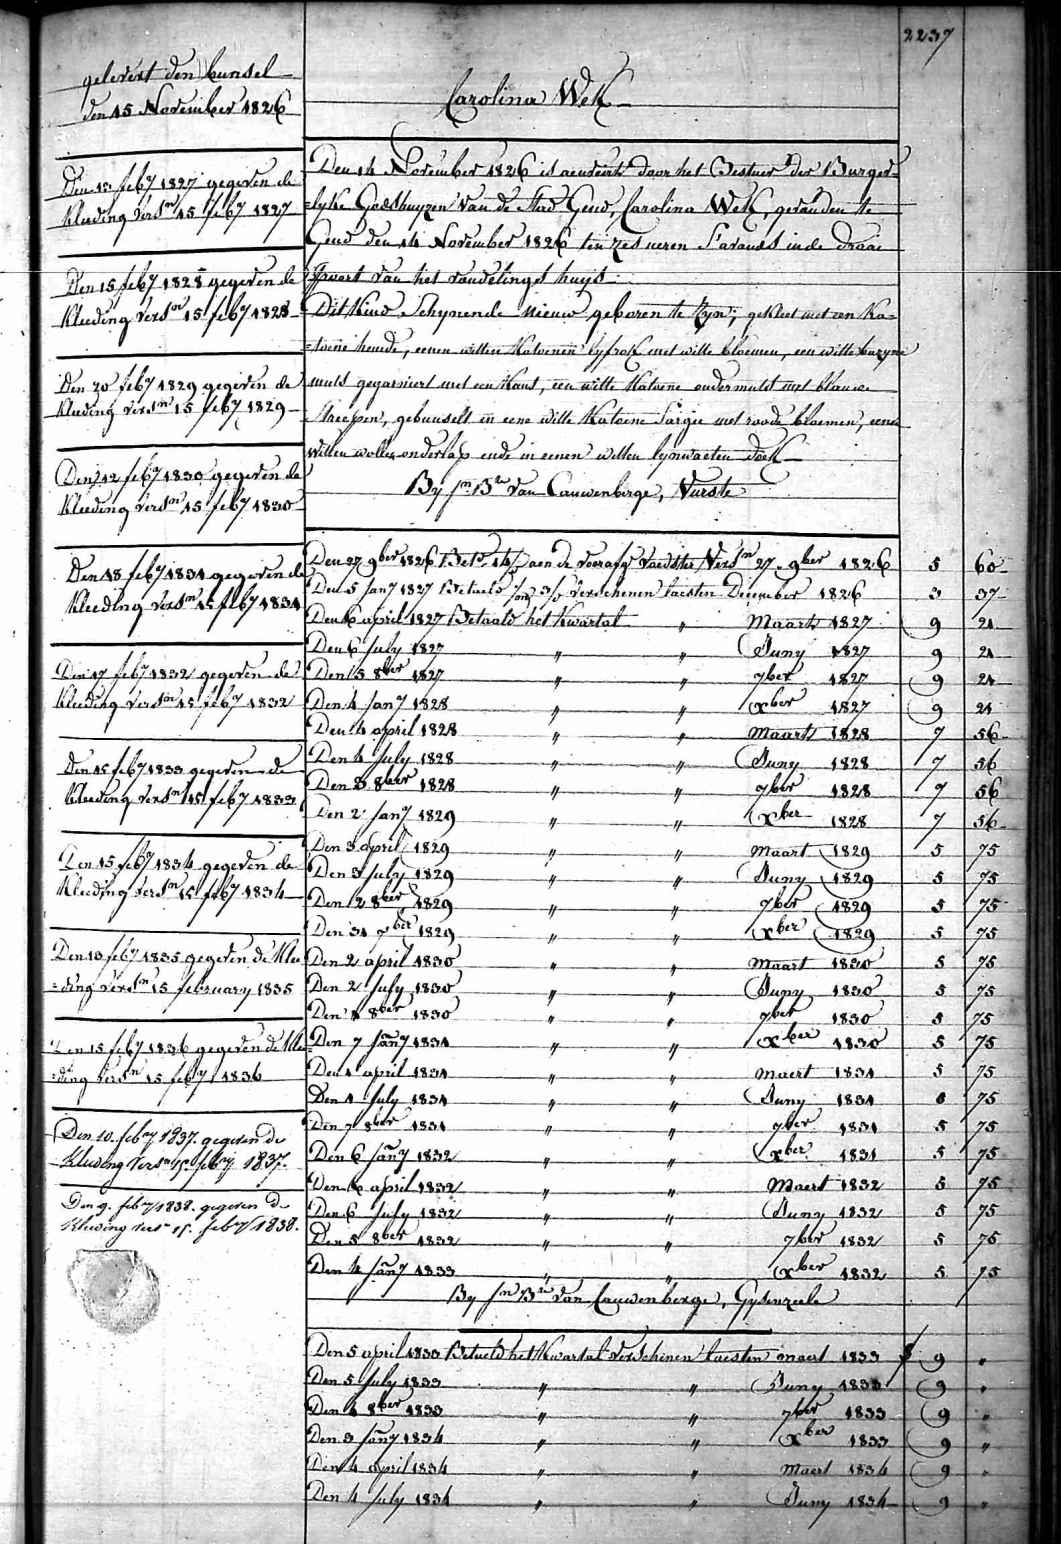 2237
gelevert den bunsel
den 15 November 1826
Den 13 feb7 1827 gegeven de
kleeding versn 15 feb7 1827
Den 15 feb7 1828 gegeven de
kleeding versn 15 feb7 1828
Den 20 feb7 1829 gegeven de
kleeding versn 15 feb7 1829
Den 12 feb7 1830 gegeven de
kleeding versn 15 feb7 1830
Den 18 feb7 1831 gegeven de
kleeding versn 15 feb7 1831
Den 17 feb7 1832 gegeven de
kleeding versn 15 feb7 1832
Den 15 feb7 1833 gegeven de
kleeding versn 15 feb7 1833
Den 15 feb7 1834 gegeven de
kleeding versn 15 feb7 1834
Den 13 feb7 1835 gegeven de klee
=ding versn 15 february 1835
Den 15 feb7 1836 gegeven de klee
=ding versn 15 feb7 1836
Den 10. feby 1837. gegeven de
kleeding versn 15. feby 1837.
Den 9. feby 1838. gegeven de
kleeding versn 15. feby 1838.
Carolina Wek
Den 14 November 1826 is door het Bestuer der Burger-
=lyke Godshuyzen van de Stad Gend, Carolina Wek, gevonden te
Gend den 14 November 1826 ten zes ueren s'avonds in de draai
Poort van het vondelings huys
Dit kind Schynende nieuw geboren te zyn; gekleet met een ka=
=toene hemde, eenen witten katoenen lyfrok met witte bloemen, een witte
muts gegarniert met een kant, een witte katoene ondermuts met blauwe
streepen, gebunselt in eene witte katoene Sargie met roode bloemen, eenen
witten wollen onderlap ende in eenen witten lynwaeten doek
By Jn Bte Van Cauwenberge, Vurste
Den 27 9ber 1826 Bett aen de voedster Versn 27 9ber 1826 5 60
Den 5 Jan7 1827 Betaeld verschenen laesten December 1826 3 37
Den 6 april 1827 Betaald het kwartal " Maart 1827 9 21
Den 6 July 1827 " " Juny 1827 9 21
Den 5 8ber 1827 " " 7ber 1827 9 21
Den 4 Jan7 1828 " " Xber 1827 9 21
Den 4 april 1828 " " Maart 1828 7 56
Den 4 July 1828 " " Juny 1828 7 56
Den 3 8ber 1828 " " 7ber 1828 7 56
Den 2 Jan7 1829 " " Xber 1828 7 56
Den 3 april 1829 " " Maart 1829 5 75
Den 3 July 1829 " " Juny 1829 5 75
Den 2 8ber 1829 " " 7ber 1829 5 75
Den 31 xber 1829 " " Xber 1829 5 75
Den 2 april 1830 " " Maart 1830 5 75
Den 2 July 1830 " " Juny 1830 5 75
Den 1 8ber 1830 " " 7ber 1830 5 75
Den 7 Jan7 1831 " " Xber 1830 5 75
Den 1 april 1831 " " Maert 1831 5 75
Den 1 July 1831 " " Juny 1831 5 75
Den 7 8ber 1831 " " 7ber 1831 5 75
Den 6 Jan7 1832 " " Xber 1831 5 75
Den 6 april 1832 " " Maert 1832 5 75
Den 6 July 1832 " " Juny 1832 5 75
Den 5 8ber 1832 " " 7ber 1832 5 75
Den 4 Jan7 1833 " " Xber 1832 5 75
By Jn Bte Van Cauwenberge, Gysenzeele
Den 5 april 1833 Betaeld het kwartal verschenen laesten maert 1833 9 "
Den 5 July 1833 " " Juny 1833 9 "
Den 4 8ber 1833 " " 7ber 1833 9 "
Den 3 Jan7 1834 " " Xber 1833 9 "
Den 4 april 1834 " " Maert 1834 9 "
Den 4 July 1834 " " Juny 1834 9 "